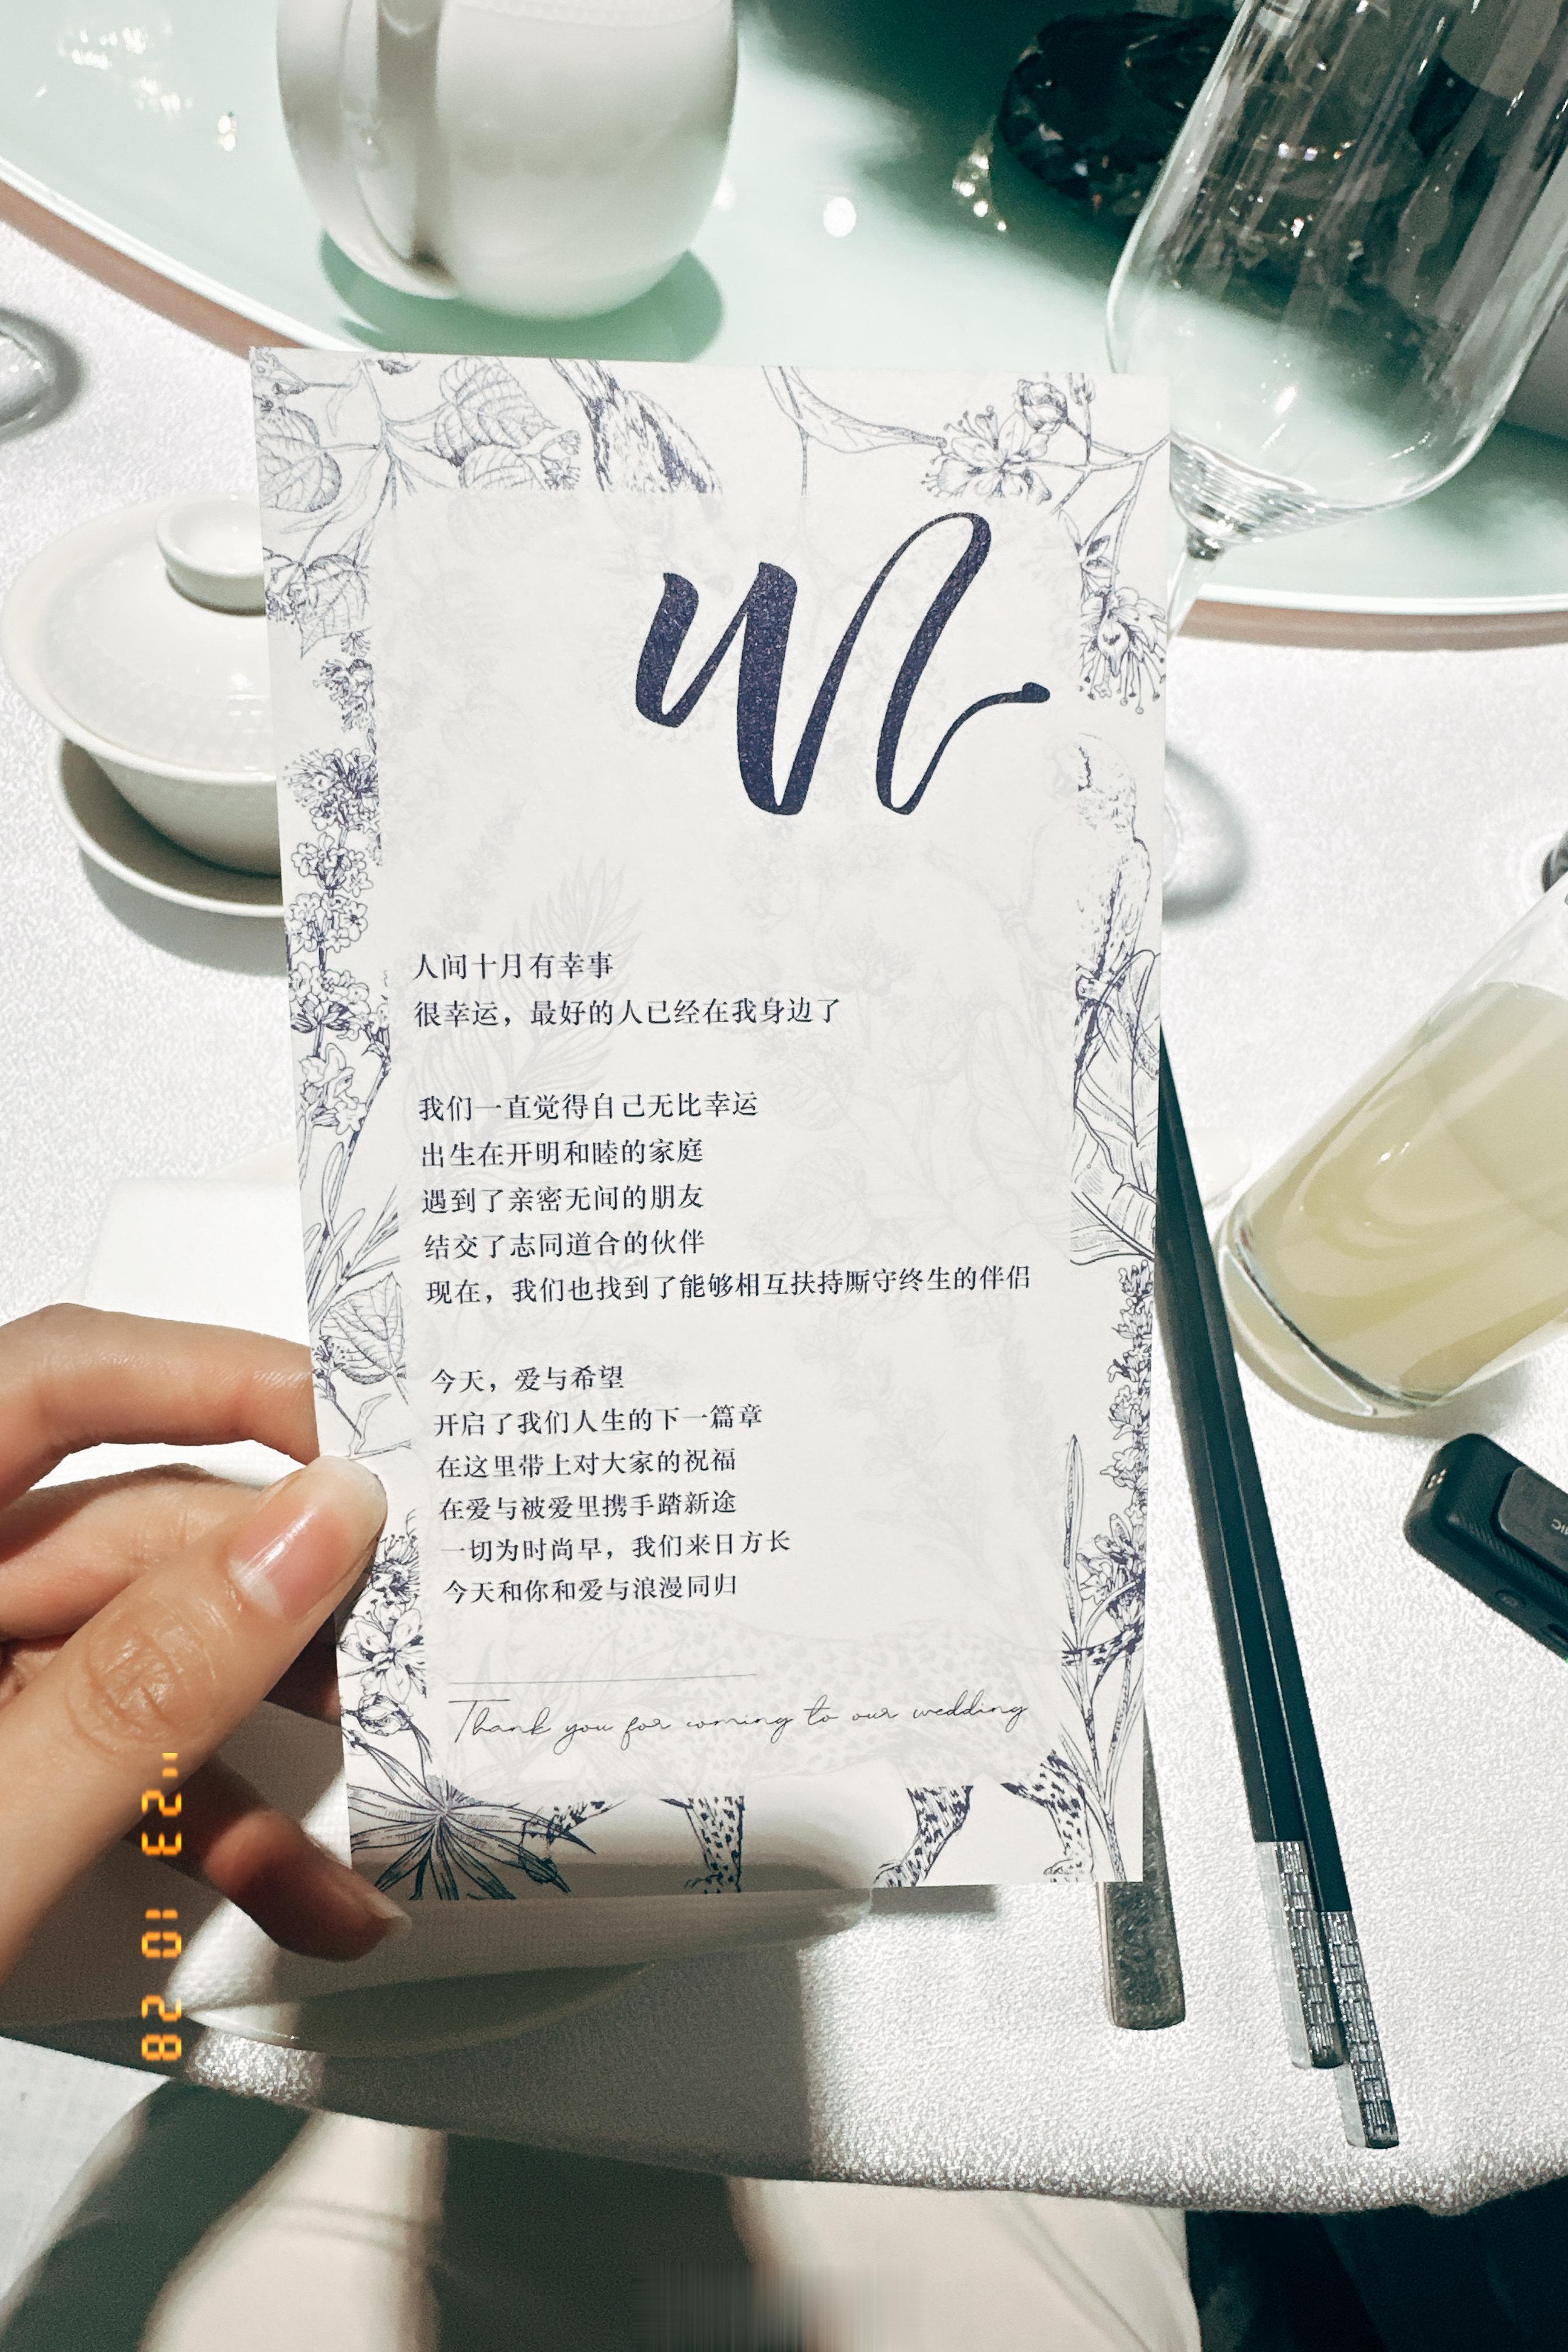 人间十月有幸事
很幸运，最好的人已经在我身边了
我们一直觉得自己无比幸运
出生在开明和睦的家庭
遇到了亲密无间的朋友
结交了志同道合的伙伴
现在，我们也找到了能够相互扶持厮守终生的伴侣
今天，爱与希望
开启了我们人生的下一篇章
在这里带上对大家的祝福
在爱与被爱里携手踏新途
一切为时尚早，我们来日方长
今天和你和爱与浪漫同归
Thank you for coming to our wedding
"23 10 28